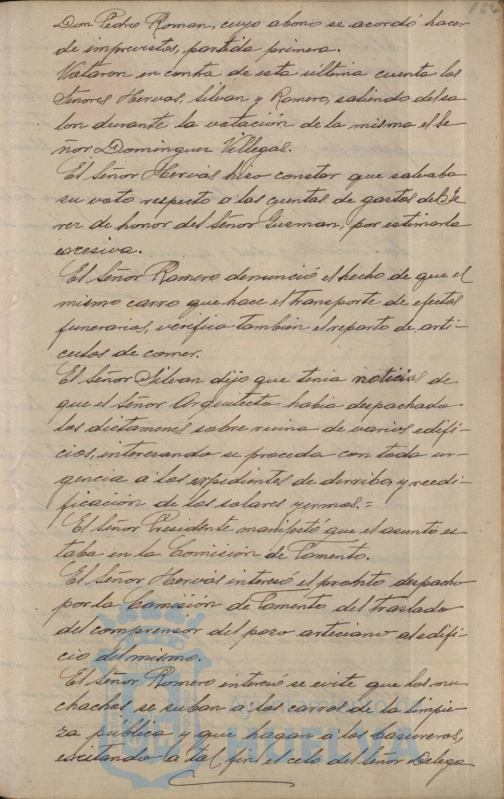 Don Pedro Roman, cuyo abono se acordó hacer
de imprevistos, partida primera.
Votaron en contra de esta última cuenta los
Señores Hervas, Silvan y Romero, saliendo del sa-
lon durante la votación de la misma el Se-
ñor Dominguez Villegas.
El Señor Hervás hizo constar que salvaba
su voto respecto a las cuentas de gastos del Je-
rez de honor del Señor Guzman, por estimarla
excesiva.
El Señor Romero denunció el hecho de que el
mismo carro que hace el transporte de efectos
funerarios, verifica tambien el reparto de artí-
culos de comer.
El Señor Silvan dijo que tenia noticias de
que el Señor Arquitecto habia despachado
los dictamenes sobre ruina de varios edifi-
cios, interesando se proceda con toda ur-
gencia a los expedientes de derribo y reedi-
ficación de los solares yermos.=
El Señor Presidente manifestó que el asunto es
taba en la Comisión de Fomento.
El Señor Hervás interesó el pronto despacho
por la Comisión de Fomento del traslado
del compresor del pozo arteciano al edifi-
cio del mismo.
El Señor Romero interesó se evite que los mu
chachos se suban a los carros de la limpie
za publica y que hagan a los basureros,
excitando a tal fin el celo del Señor Delega
HUELVA